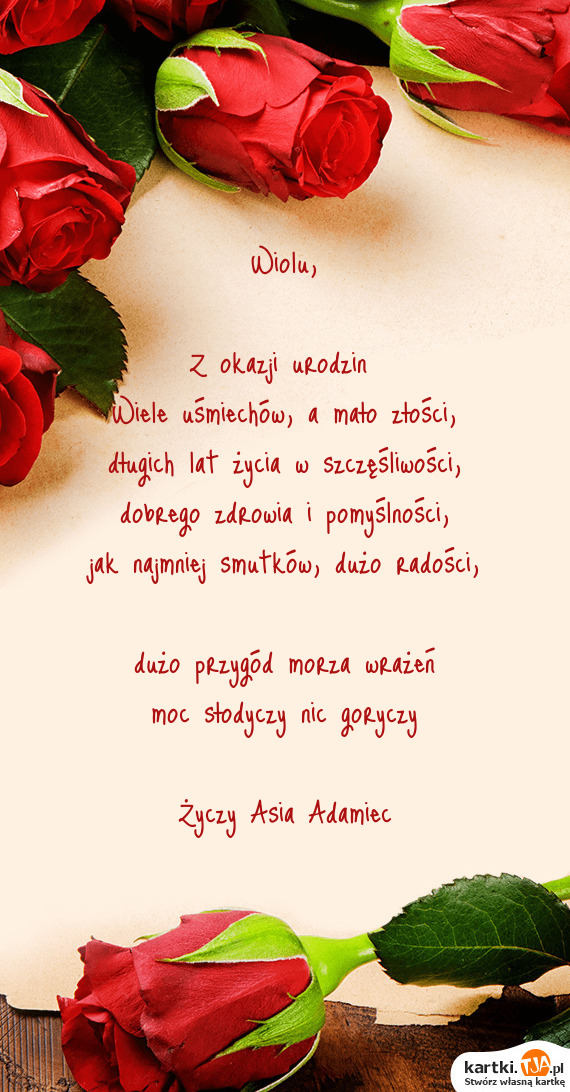 Wiolu,
Z okazji urodzin
Wiele uśmiechów, a mało złości,
długich lat życia w szczęśliwości,
dobrego zdrowia i pomyślności,
jak najmniej smutków, dużo radości,
dużo przygód morza wrażeń
moc słodyczy nic goryczy
Życzy Asia Adamiec
kartki.TJA.pl
Stwórz własną kartkę